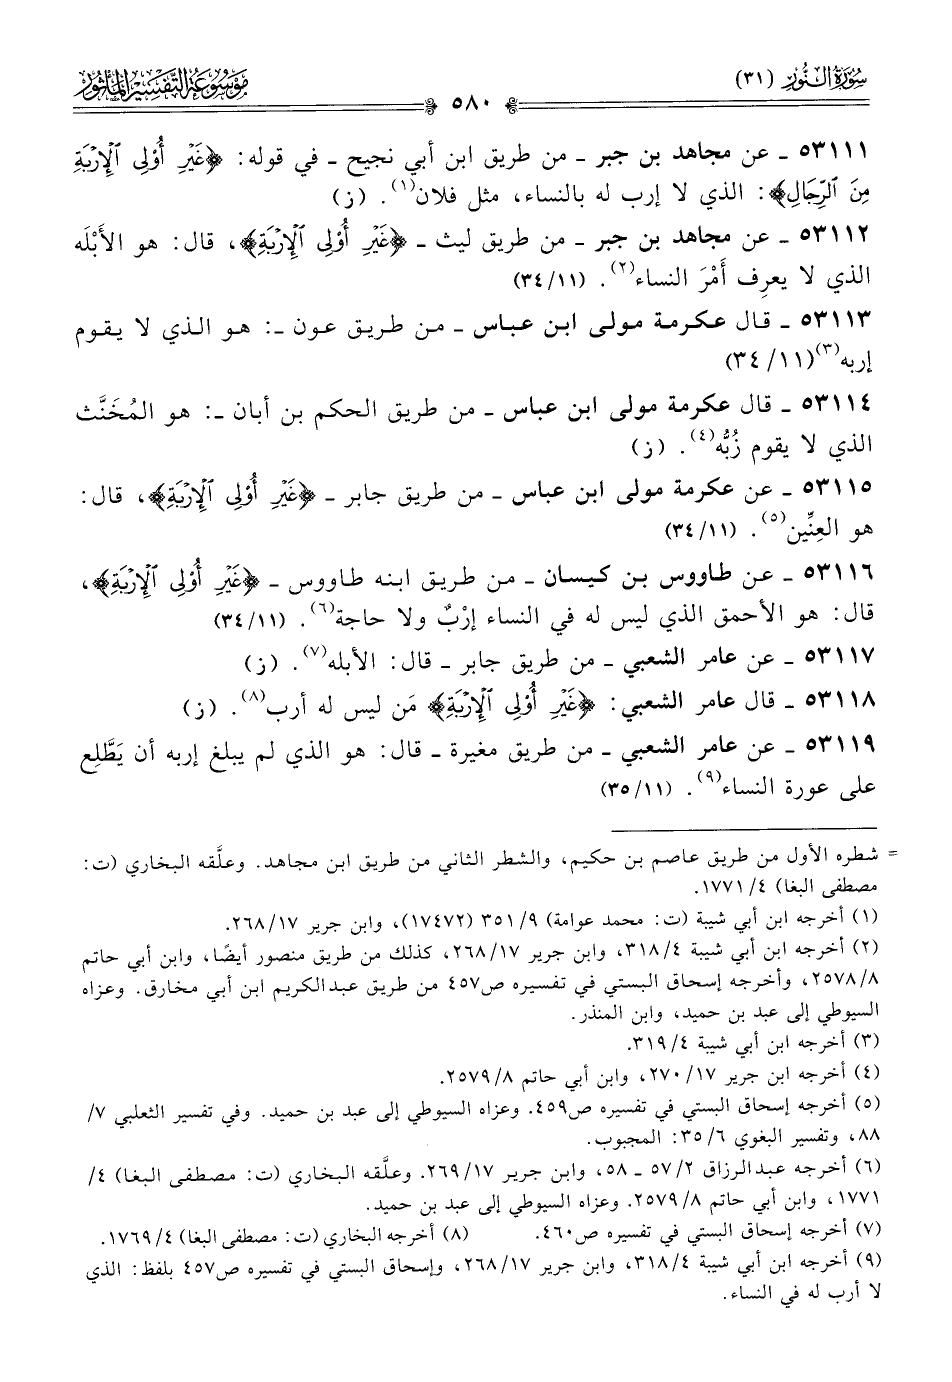 سُورَةُ النُّور (٣١)
٥٨٠
مَوْسُوعَة التَّفْسِيْر المَأْثُور
٥٣١١١ ـ عن مجاهد بن جبر ـ من طريق ابن أبي نجيح ـ في قوله: ﴿غَيْرِ أُوْلِي ٱلْإِرْبَةِ
مِنَ ٱلرِّجَالِ﴾: الذي لا إرب له بالنساء، مثل فلان(١). (ز)
٥٣١١٢ ـ عن مجاهد بن جبر ـ من طريق ليث ـ ﴿غَيْرِ أُوْلِي ٱلْإِرْبَةِ﴾، قال: هو الأَبْلَه
الذي لا يعرِف أَمْرَ النساء(٢). (١١/٣٤)
٥٣١١٣ ـ قال عكرمة مولى ابن عباس ـ من طريق عون ـ: هو الذي لا يقوم
إربه(٣)(١١/٣٤)
٥٣١١٤ ـ قال عكرمة مولى ابن عباس ـ من طريق الحكم بن أبان ـ: هو المُخَنَّث
الذي لا يقوم زُبُّه(٤). (ز)
٥٣١١٥ ـ عن عكرمة مولى ابن عباس ـ من طريق جابر ـ ﴿غَيْرِ أُوْلِي ٱلْإِرْبَةِ﴾، قال:
هو العِنِّين(٥). (١١/٣٤)
٥٣١١٦ ـ عن طاووس بن كيسان ـ من طريق ابنه طاووس ـ ﴿غَيْرِ أُوْلِي ٱلْإِرْبَةِ﴾،
قال: هو الأحمق الذي ليس له في النساء إرْبٌ ولا حاجة(٦). (١١/٣٤)
٥٣١١٧ ـ عن عامر الشعبي ـ من طريق جابر ـ قال: الأبله(٧). (ز)
٥٣١١٨ ـ قال عامر الشعبي: ﴿غَيْرِ أُوْلِي ٱلْإِرْبَةِ﴾ مَن ليس له أرب(٨). (ز)
٥٣١١٩ ـ عن عامر الشعبي ـ من طريق مغيرة ـ قال: هو الذي لم يبلغ إربه أن يَطَّلِع
على عورة النساء(٩). (١١/٣٥)
= شطره الأول من طريق عاصم بن حكيم، والشطر الثاني من طريق ابن مجاهد. وعلَّقه البخاري (ت:
مصطفى البغا) ٤/١٧٧١.
(١) أخرجه ابن أبي شيبة (ت: محمد عوامة) ٩/٣٥١ (١٧٤٧٢)، وابن جرير ١٧/٢٦٨.
(٢) أخرجه ابن أبي شيبة ٤/٣١٨، وابن جرير ١٧/٢٦٨، كذلك من طريق منصور أيضًا، وابن أبي حاتم
٨/٢٥٧٨، وأخرجه إسحاق البستي في تفسيره ص٤٥٧ من طريق عبدالكريم ابن أبي مخارق. وعزاه
السيوطي إلى عبد بن حميد، وابن المنذر.
(٣) أخرجه ابن أبي شيبة ٤/٣١٩.
(٤) أخرجه ابن جرير ١٧/٢٧٠، وابن أبي حاتم ٨/٢٥٧٩.
(٥) أخرجه إسحاق البستي في تفسيره ص٤٥٩. وعزاه السيوطي إلى عبد بن حميد. وفي تفسير الثعلبي ٧/
٨٨، وتفسير البغوي ٦/٣٥: المجبوب.
(٦) أخرجه عبدالرزاق ٢/٥٧ ـ ٥٨، وابن جرير ١٧/٢٦٩. وعلَّقه البخاري (ت: مصطفى البغا) ٤/
١٧٧١، وابن أبي حاتم ٨/٢٥٧٩. وعزاه السيوطي إلى عبد بن حميد.
(٧) أخرجه إسحاق البستي في تفسيره ص٤٦٠. (٨) أخرجه البخاري (ت: مصطفى البغا) ٤/١٧٦٩.
(٩) أخرجه ابن أبي شيبة ٤/٣١٨، وابن جرير ١٧/٢٦٨، وإسحاق البستي في تفسيره ص٤٥٧ بلفظ: الذي
لا أرب له في النساء.